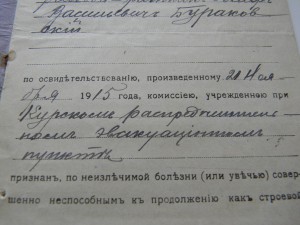 Васильевичъ Бураков
скій
по освидѣтельствованію, произведенному 20 Ноя-
бря 1915 года, комиссіею, учрежденною при
Курскомъ распредѣлитель-
номъ эвакуаціонномъ
пунктѣ
признан, по неизлѣчимой болѣзни (или увѣчью) совер-
шенно неспособнымъ къ продолженію какъ строевой